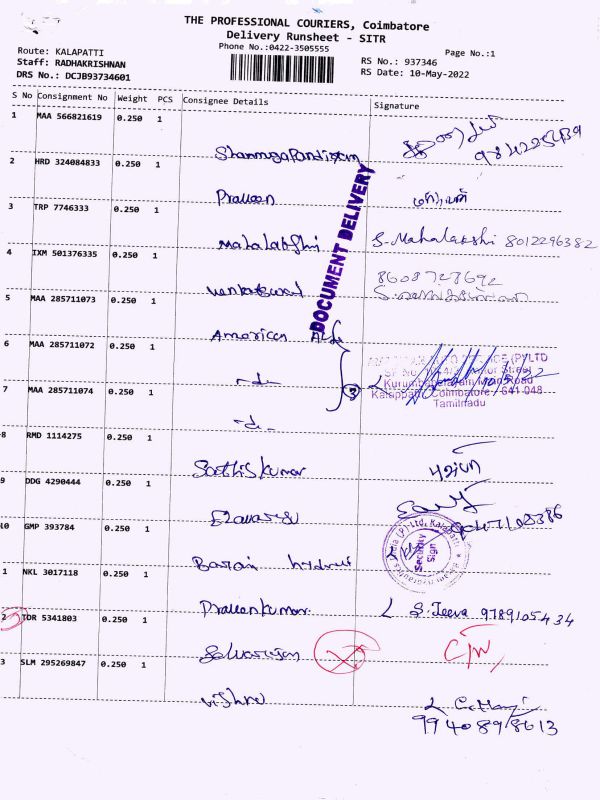 THE PROFESSIONAL COURIERS, Coimbatore
Delivery Runsheet - SITR
Phone No.:0422-3505555
Page No.:1
Route: KALAPATTI
Staff: RADHAKRISHNAN
DRS No.: DCJB93734601
RS No.: 937346
RS Date: 10-May-2022
S No Consignment No Weight PCS Consignee Details Signature
1 MAA 566821619 0.250 1
9842225439
Shanmugapandiyan
2 HRD 324084833 0.250 1
Praveen
3 TRP 7746333 0.250 1
Mahalakshmi S. Mahalakshi 8012296382
4 IXM 501376335 0.250 1
8608728692
Venkateswaral
5 MAA 285711073 0.250 1
DOCUMENT DELIVERY
American
6 MAA 285711072 0.250 1
(P)LTD
-do-
3
Main Road
Kalappatti, Coimbatore - 641 048
Tamilnadu
7 MAA 285711074 0.250 1
-do-
8 RMD 1114275 0.250 1
Sathiskumar
9 DDG 4290444 0.250 1
Elavarasu
9047108386
10 GMP 393784 0.250 1
(P) Ltd, Kalapatti
Security
Sign
Barani hydraul
1 NKL 3017118 0.250 1
Praveenkumar. S. Jeeva 9789105434
2 TDR 5341803 0.250 1
Selvarajan
3 SLM 295269847 0.250 1
Vishnu
9940898613